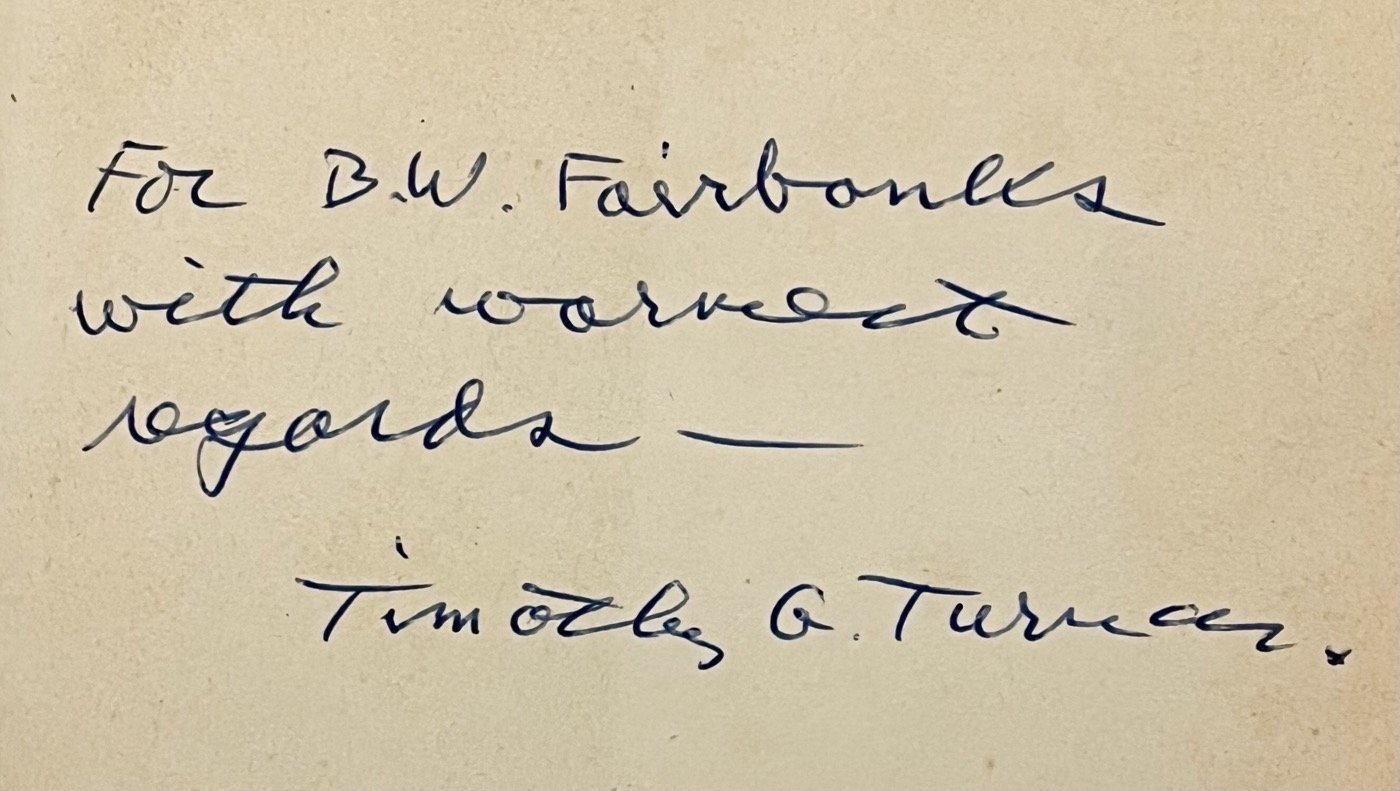 For B.W. Fairbanks
with warmest
regards —
Timothy G. Turner.